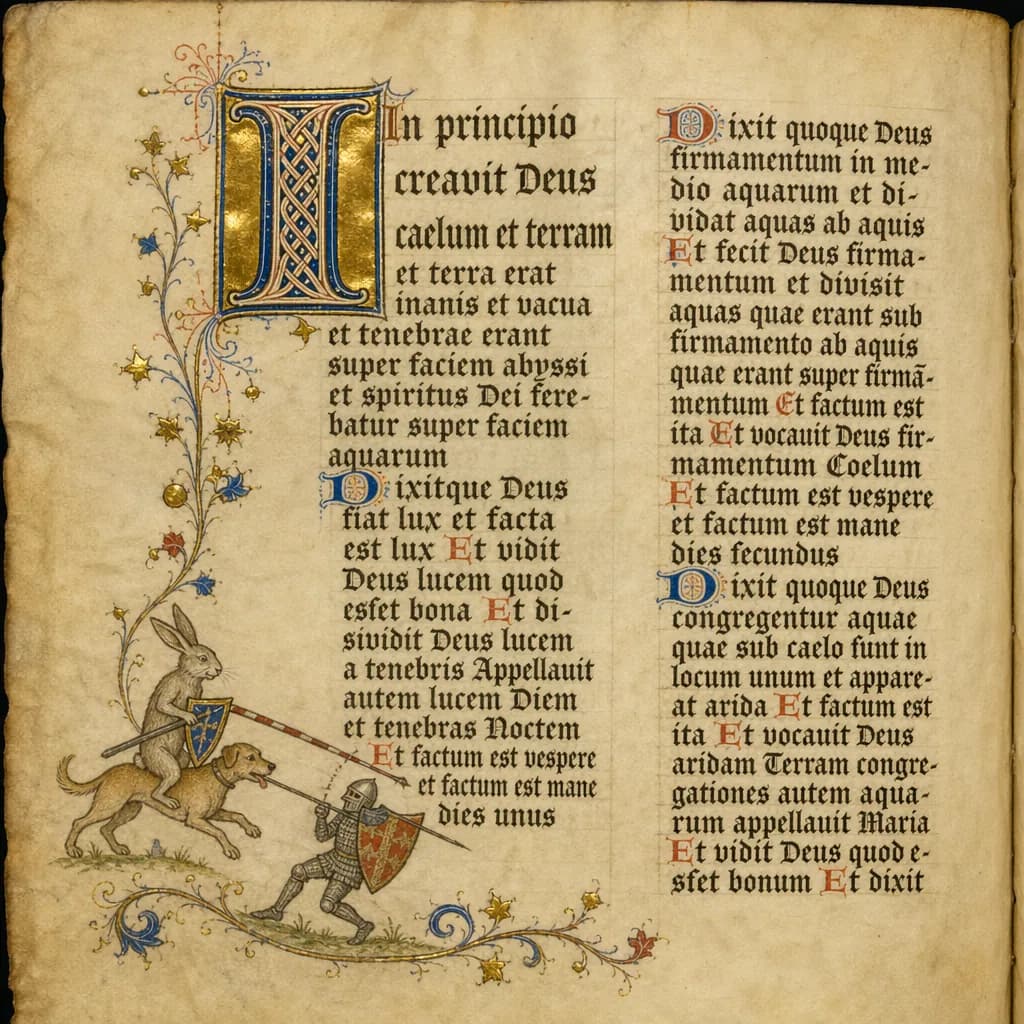 I
In principio
creavit Deus
caelum et terram
et terra erat
inanis et vacua
et tenebrae erant
super faciem abyssi
et spiritus Dei fere-
batur super faciem
aquarum
Dixitque Deus
fiat lux et facta
est lux Et vidit
Deus lucem quod
esset bona Et di-
sividit Deus lucem
a tenebris Appellauit
autem lucem Diem
et tenebras Noctem
Et factum est vespere
et factum est mane
dies unus
Dixit quoque Deus
firmamentum in me-
dio aquarum et di-
vidat aquas ab aquis
Et fecit Deus firma-
mentum et divisit
aquas quae erant sub
firmamento ab aquis
quae erant super firmā-
mentum Et factum est
ita Et vocauit Deus fir-
mamentum Coelum
Et factum est vespere
et factum est mane
dies fecundus
Dixit quoque Deus
congregentur aquae
quae sub caelo funt in
locum unum et appare-
at arida Et factum est
ita Et vocauit Deus
aridam Terram congre-
gationes autem aqua-
rum appellauit Maria
Et vidit Deus quod e-
sfet bonum Et dixit